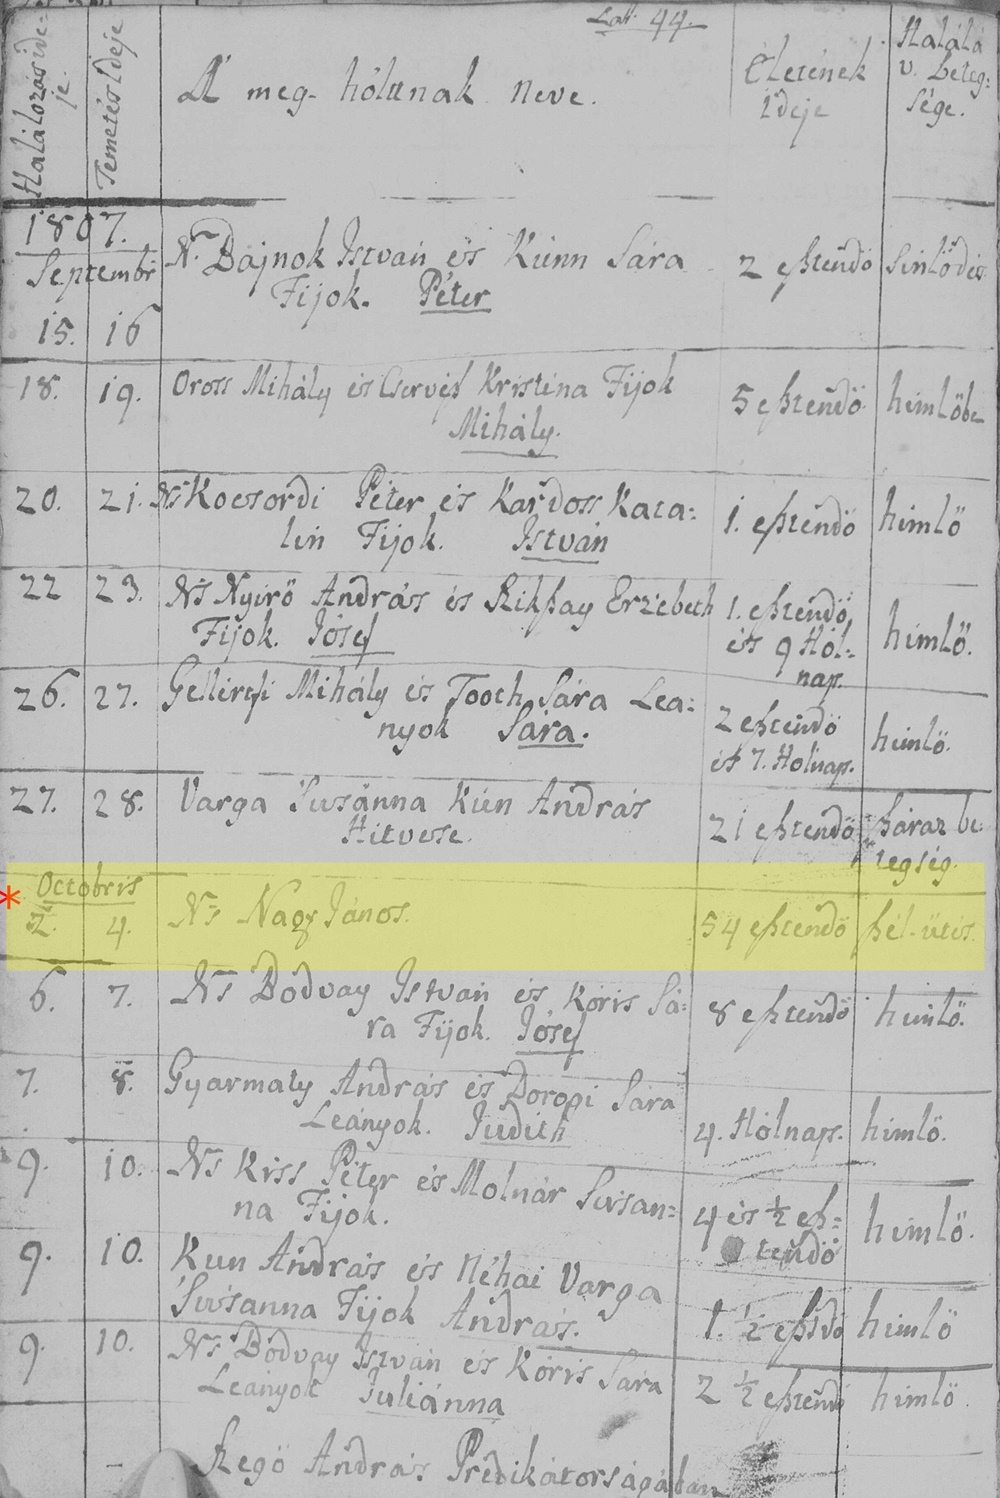 Lat. 44.
Halálozás ideje.
Temetés Ideje
A' meg-hóltnak Neve.
Életének
Ideje
Halála
v. beteg-
sége.
1807.
Septembr
15. 16
N. Bajnok István és Kúnn Sára
Fijok. Péter
2 eßtendő
Sinlődés
18. 19. Oross Mihály és Kristina Fijok
Mihály.
5 eßtendő
himlőbe
20. 21. Ns Kocsordi Péter és Kardoss Kata=
lin Fijok. István
1. eßtendő
himlő
22 23. Ns Nyirő András és Rikßay Ersébeth
Fijok. Jósef
1. eßtendő,
és 9 Hól-
nap.
himlő.
26. 27. Gellérfi Mihály és Tooth Sára Lea=
nyok Sára.
2 eßtendő
és 7. Holnap.
himlő.
27. 28. Varga Susánna Kún András
Hitvese.
21 eßtendő
ßáraz be
tegség.
Octobris
2. 4. Ns Nagy János.
54 eßtendő
ßél-ütés
6. 7. Ns Bodvay István és Kóris Sá=
ra Fijok. Jósef
8 eßtendő
himlő.
7. 8. Gyarmaty András és Dorogi Sára
Leányok. Judith
4. Hólnap.
himlő.
9. 10. Ns Kiss Péter és Molnár Susan=
na Fijok.
4 és ½ eß=
tendő
himlő.
9. 10. Kun András és Néhai Varga
Susanna Fijok András.
1. ½ eßtdő
himlő
9. 10. Ns Bodvay István és Kóris Sára
Leányok Juliánna
2 ½ eßtendő
himlő.
ßegő András Prédikátorságában